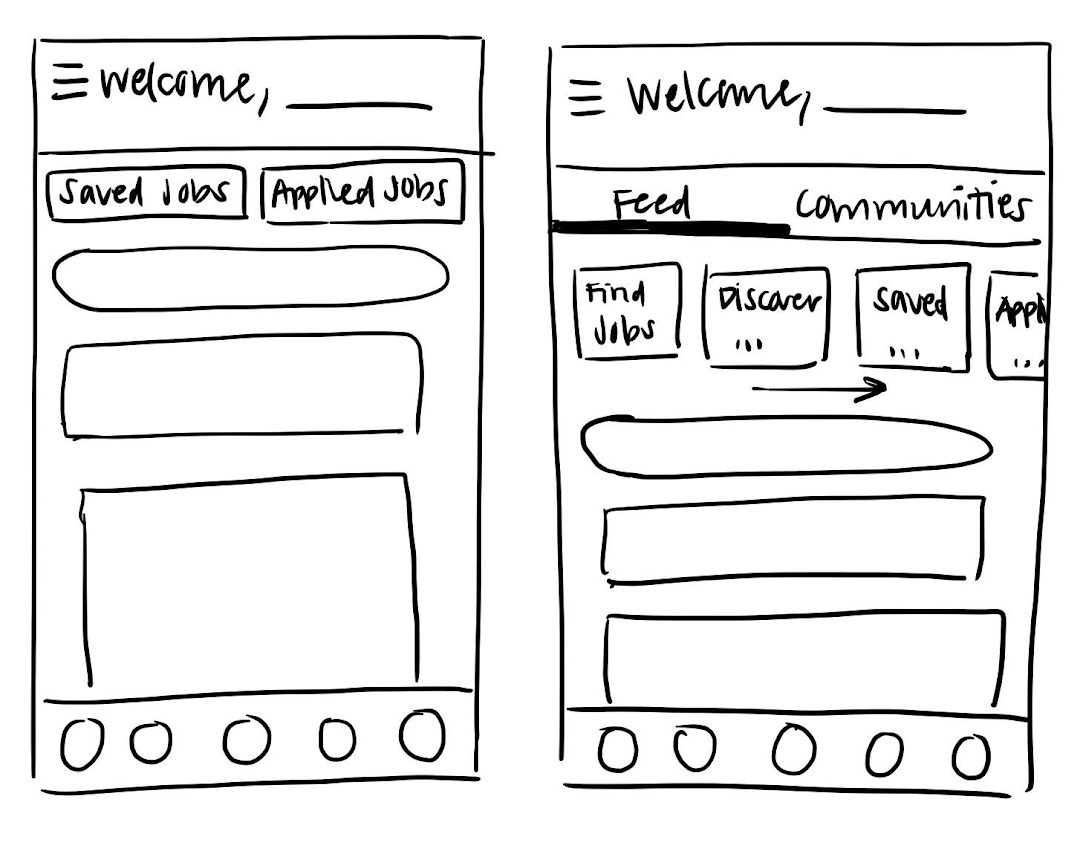 Welcome,
Saved Jobs
Applied Jobs
Welcome,
Feed
Communities
Find
Jobs
Discover
...
Saved
...
Appli
...